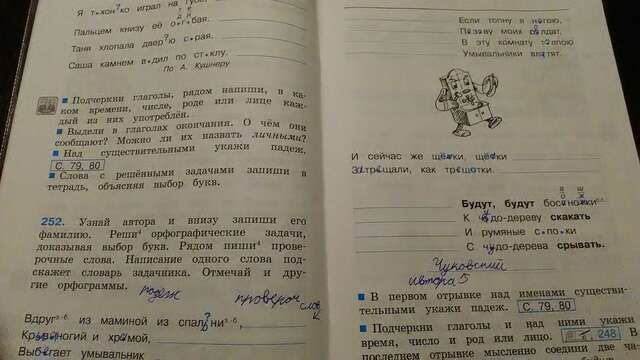 Я т•хон?ко играл на губе
Пальцем книзу её о•г•бая.
Таня хлопала двер?ю с•рая.
Саша камнем в•дил по ст•клу.
По А. Кушнеру
Подчеркни глаголы, рядом напиши, в ка-
ком времени, числе, роде или лице каж-
дый из них употреблён.
Выдели в глаголах окончания. О чём они
сообщают? Можно ли их назвать личными?
Над существительными укажи падеж.
С. 79, 80
Слова с решёнными задачами запиши в
тетрадь, объясняя выбор букв.
252. Узнай автора и внизу запиши его
фамилию. Реши⁴ орфографические задачи,
доказывая выбор букв. Рядом пиши⁴ прове-
рочные слова. Написание одного слова под-
скажет словарь задачника. Отмечай и дру-
гие орфограммы.
падеж
провероч слов
Вдруг из маминой из спал?ни
Кривоногий и хромой,
Выбегает умывальник
Если топну я ногою,
Позову моих солдат,
В эту комнату толпою
Умывальники влетят.
И сейчас же щётки, щётки
Затрещали, как трещотки.
Будут, будут босоножки
К чудо-дереву скакать
И румяные с•по•ки
С чудо-дерева срывать.
Чуковский
автора
В первом отрывке над именами существи-
тельными укажи падеж. С. 79, 80
Подчеркни глаголы и над ними укажи
время, число и род или лицо. 248
последнем отрывке мысленно соедини две ча-